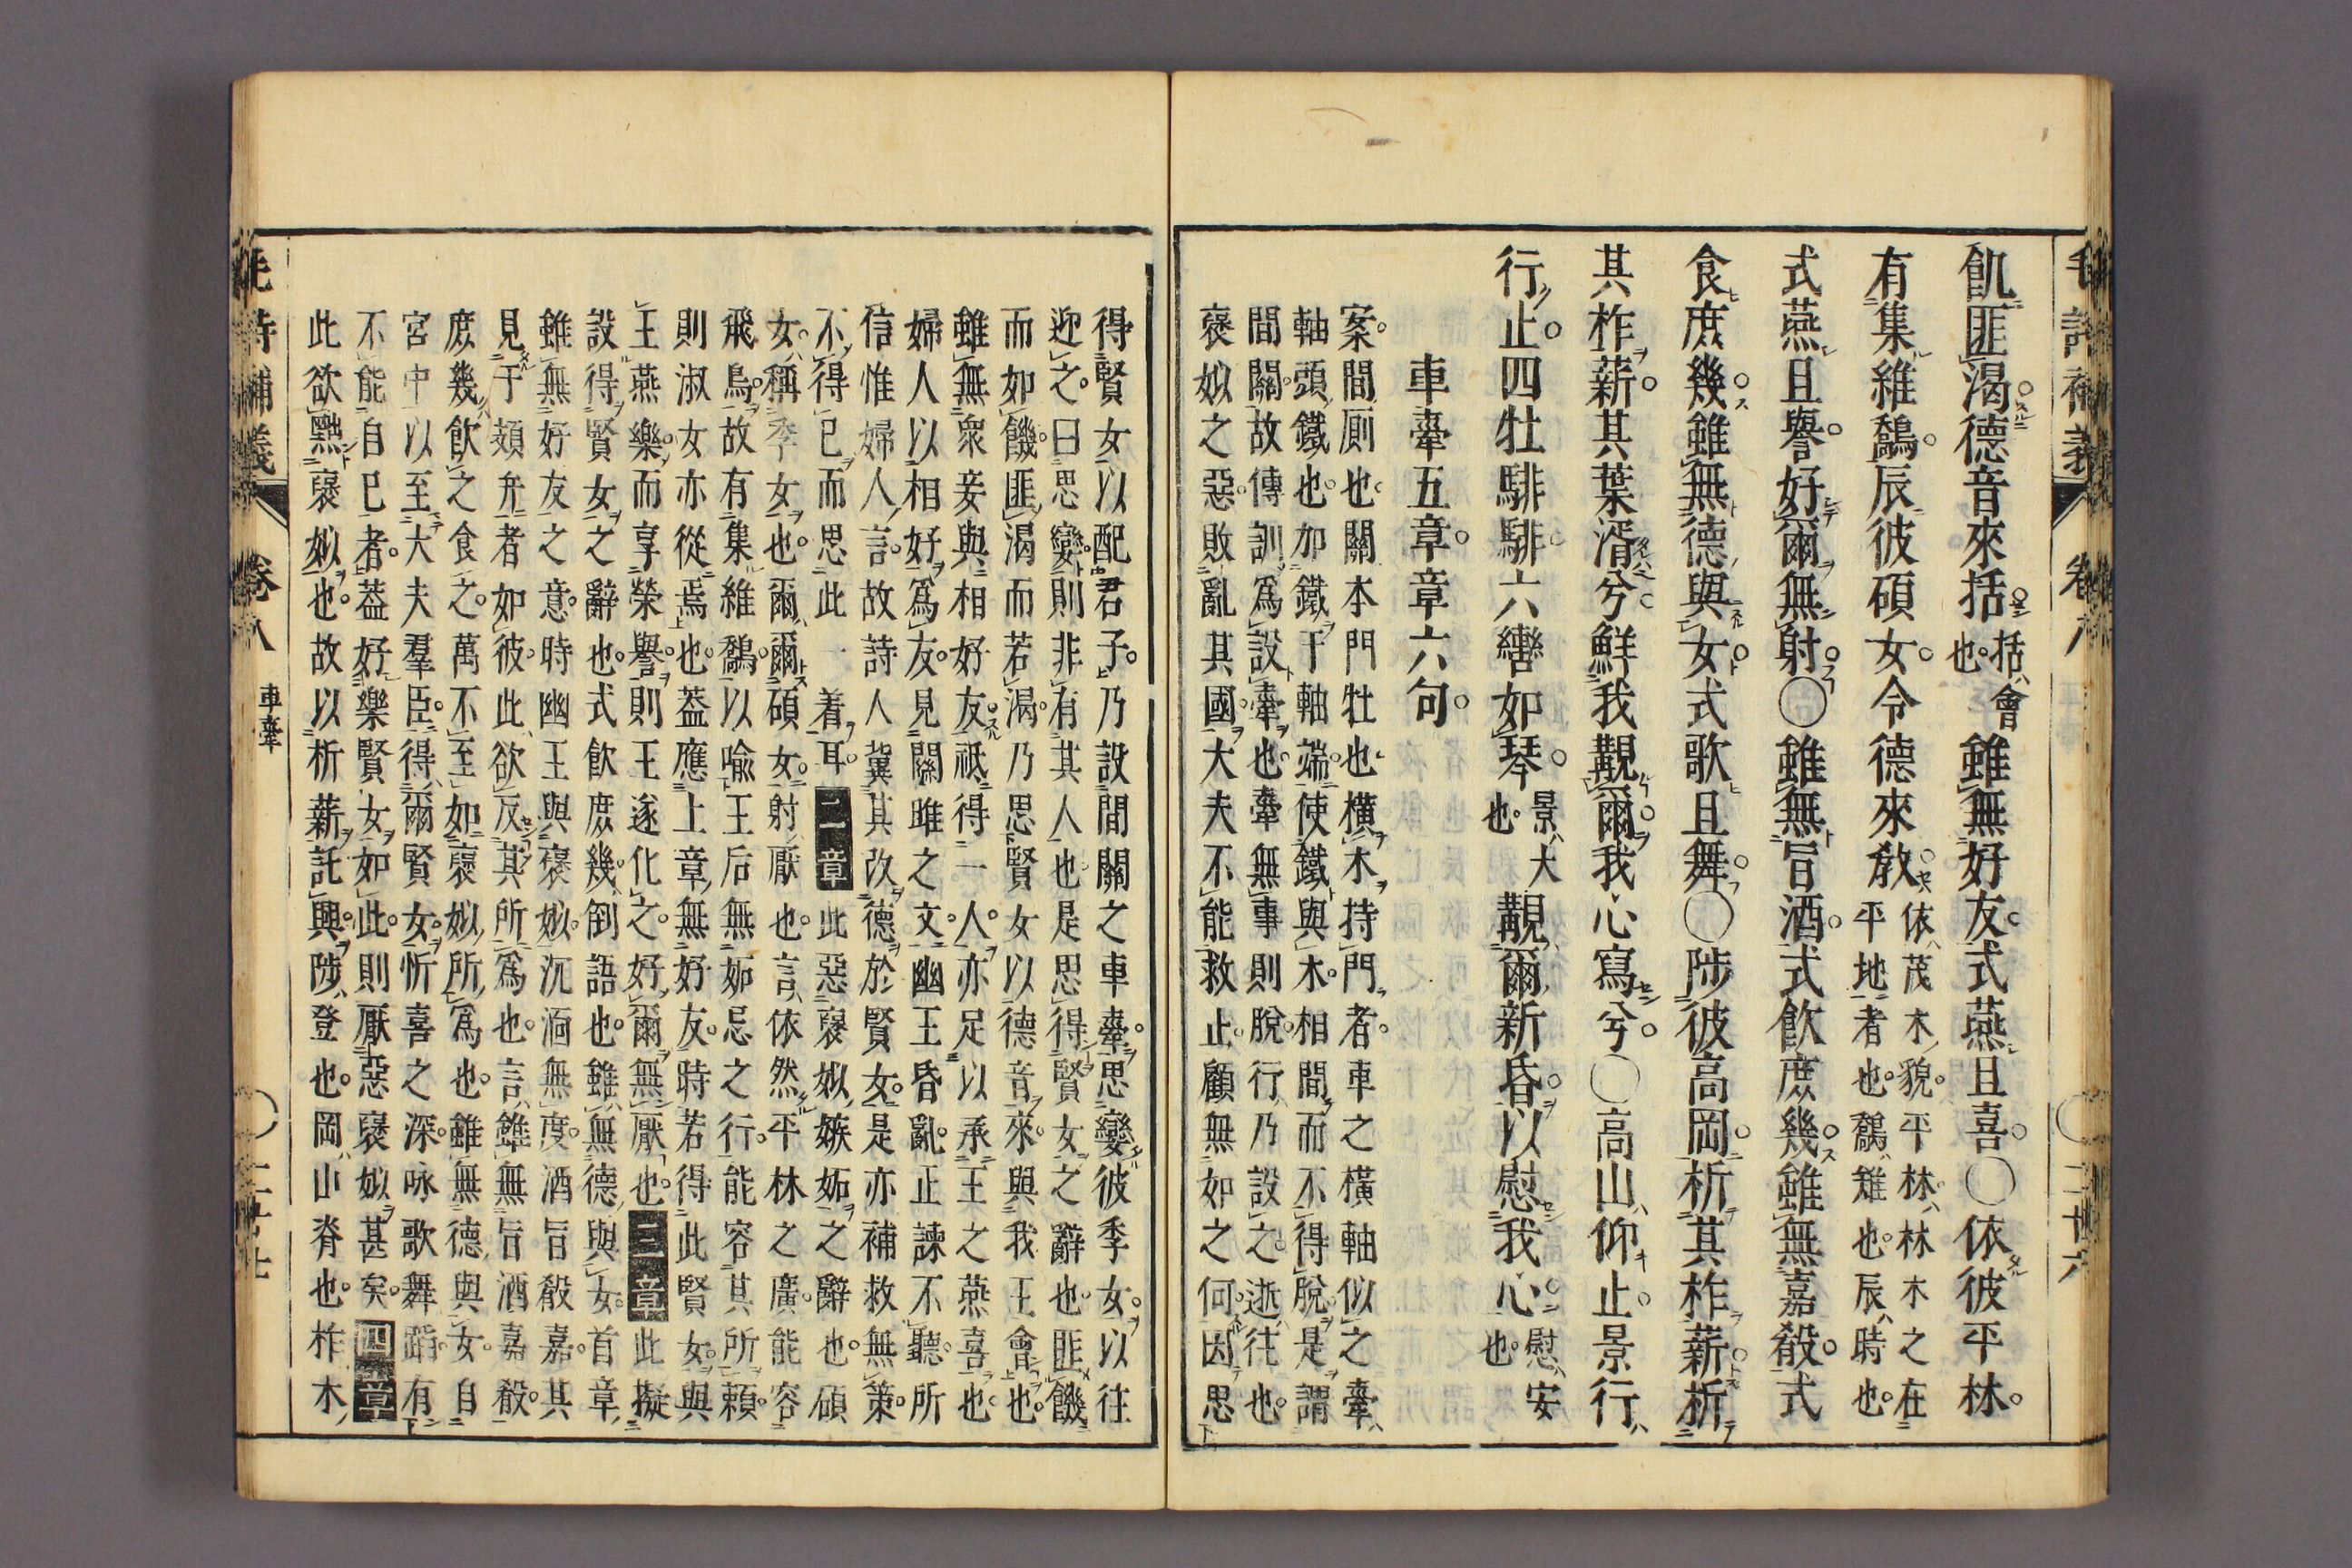 毛詩補義 卷八
飢匪渴德音來括括會也雖無好友式燕且喜○依彼平林
有集維鷮辰彼碩女令德來教依茂木貌平林林木之在平地者也鷮雉也辰時也
式燕且譽好爾無射○雖無旨酒式飲庶幾雖無嘉殽式
食庶幾雖無德與女式歌且舞○陟彼高岡析其柞薪析
其柞薪其葉湑兮鮮我覯爾我心寫兮○高山仰止景行
行止四牡騑騑六轡如琴景大也覯爾新昏以慰我心慰安也
車舝五章章六句
案間厠也關本門牡也橫木持門者車之橫軸似之舝
軸頭鐵也加鐵于軸端使鐵與木相間而不得脫是謂
間關故傳訓爲設舝也舝無事則脫行乃設之逝往也
褒姒之惡敗亂其國大夫不能救止顧無如之何因思
得賢女以配君子乃設間關之車舝思孌彼季女以往
迎之曰思孌則非有其人也是思得賢女之辭也匪饑
而如饑匪渴而若渴乃思賢女以德音來與我王會也
雖無衆妾與相好友祗得一人亦足以承王之燕喜也
婦人以相好爲友見關雎之文幽王昏亂正諫不聽所
信惟婦人言故詩人冀其改德於賢女是亦補救無策
不得已而思此一着耳二章此惡褒姒嫉妬之辭也碩
女稱季女也爾爾碩女射厭也言依然平林之廣能容
飛鳥故有集維鷮以喩王后無妬忌之行能容其所賴
則淑女亦從焉也蓋應上章無好友時若得此賢女與
王燕樂而享榮譽則王遂化之好爾無厭也三章此擬
設得賢女之辭也式飲庶幾倒語也雖無德與女首章
雖無好友之意時幽王與褒姒沉湎無度酒旨殽嘉其
見于頍弁者如彼此欲反其所爲也言雖無旨酒嘉殽
庶幾飲之食之萬不至如褒姒所爲也雖無德與女自
宮中以至大夫羣臣得爾賢女忻喜之深咏歌舞蹈有
不能自已者蓋好樂賢女如此則厭惡褒姒甚矣四章
此欲黜褒姒也故以析薪託興陟登也岡山脊也柞木
毛詩補義 卷八 車舝